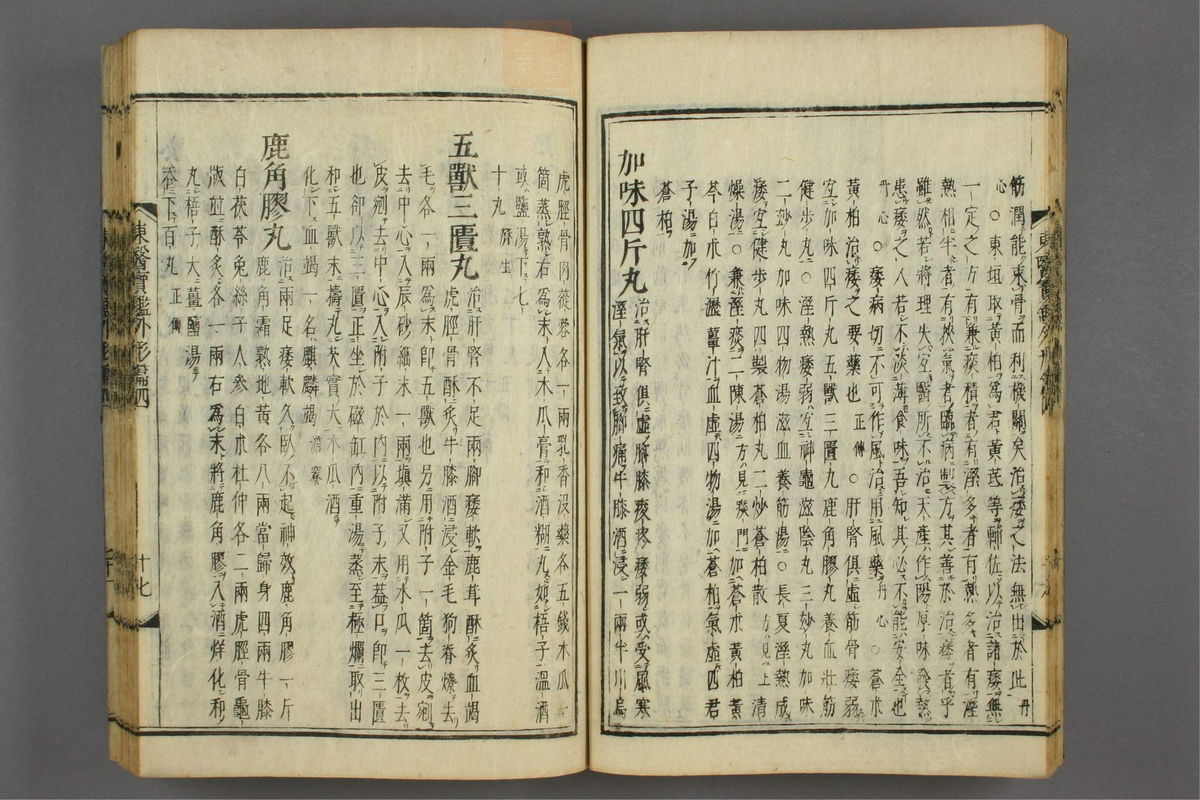 筋潤能束骨而利機關矣治痿之法無出於此丹
心○東垣取黃柏爲君黃芪等輔佐以治諸痿無
一定之方有兼痰積者有溼多者有熱多者有溼
熱相半者有挾氣者臨病製方其善於治痿者乎
雖然若將理失宜醫所不治天產作陽厚味發熱
患痿之人若不淡薄食味吾知其必不能安全也
丹心○痿病切不可作風治用風藥丹心○蒼朮
黃柏治痿之要藥也正傳○肝腎俱虛筋骨痿弱
宜加味四斤丸五獸三匱丸鹿角膠丸養血壯筋
健步丸○溼熱痿弱宜神龜滋陰丸三妙丸加味
二妙丸加味四物湯滋血養筋湯○長夏溼熱成
痿宜健步丸四製蒼柏丸二炒蒼柏散方見上清
燥湯○兼溼痰二陳湯方見痰門加蒼朮黃柏黃
芩白朮竹瀝薑汁血虛四物湯加蒼柏氣虛四君
子湯加
蒼柏
加味四斤丸 治肝腎俱虛脚膝痠疼痿弱或受風寒
溼氣以致脚痛牛膝酒浸一兩半川烏
虎脛骨肉蓯蓉各一兩乳香沒藥各五錢木瓜一
箇蒸熟右爲末入木瓜膏和酒糊丸如梧子溫酒
或鹽湯下七
十丸濟生
五獸三匱丸 治肝腎不足兩脚痿軟鹿茸酥炙血竭
虎脛骨酥炙牛膝酒浸金毛狗脊燎去
毛各一兩爲末卽五獸也另用附子一箇去皮剜
去中心入辰砂細末一兩塡滿又用木瓜一枚去
皮剜去中心入附子於內以附子末蓋口卽三匱
也却以三匱正坐於磁缸內重湯蒸至極爛取出
和五獸末擣丸芡實大木瓜酒
化下血竭一名麒麟竭澹寮
鹿角膠丸 治兩足痿軟久臥不起神效鹿角膠一斤
鹿角霜熟地黃各八兩當歸身四兩牛膝
白茯苓兔絲子人參白朮杜仲各二兩虎脛骨龜
版並酥炙各一兩右爲末將鹿角膠入酒烊化和
丸梧子大薑鹽湯
呑下百丸正傳
東醫寶鑑外形篇四
十七